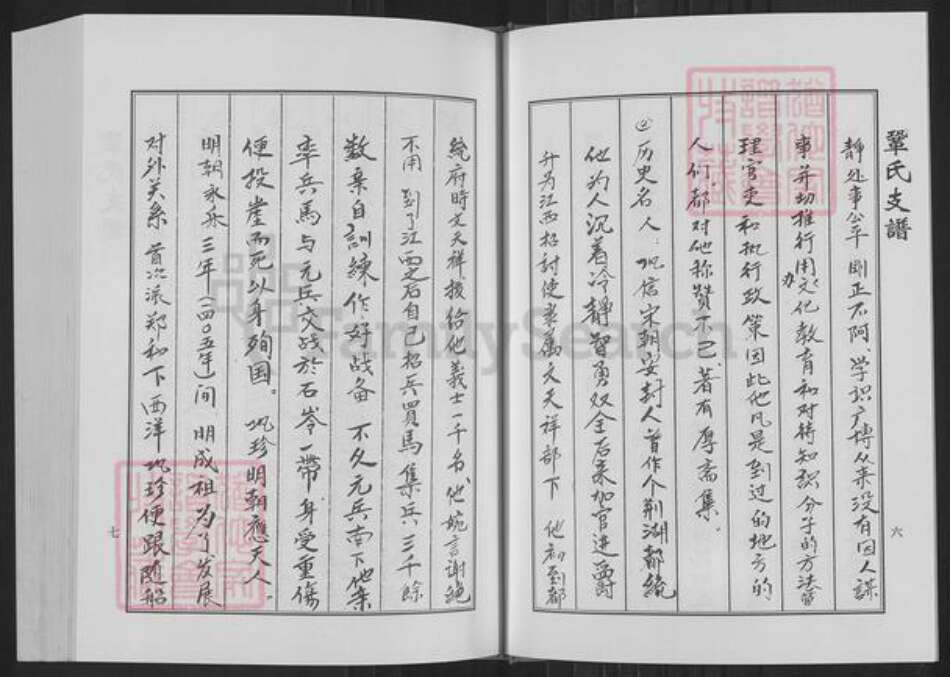 鞏氏支譜
静处事公平 剛正不阿，学识广博从来没有因人謀
事并切推行用文化教育和对待知识分子的方法管
办
理官吏和执行政策因此他凡是到过的地方的
人们，都对他称赞不已，著有厚斋集。
②历史名人：巩信宋朝安封人曾作个荆湖都統
他为人沉着冷静智勇双全后来加官进爵
升为江西招討使隶属文天祥部下 他初到都
六
統府時文天祥拨给他義士一千名，他婉言谢绝
不用 到了江西之后自己招兵買馬集兵三千餘
数亲自訓練作好战备 不久元兵南下他率
率兵馬与元兵交战於石岺一帶身受重傷
便投崖而死以身殉国。 巩珍明朝應天人。
明朝永乐三年(一四〇五年)间 明成祖为了发展
对外关系 首次派郑和下西洋巩珍便跟随船
七
FamilySearch